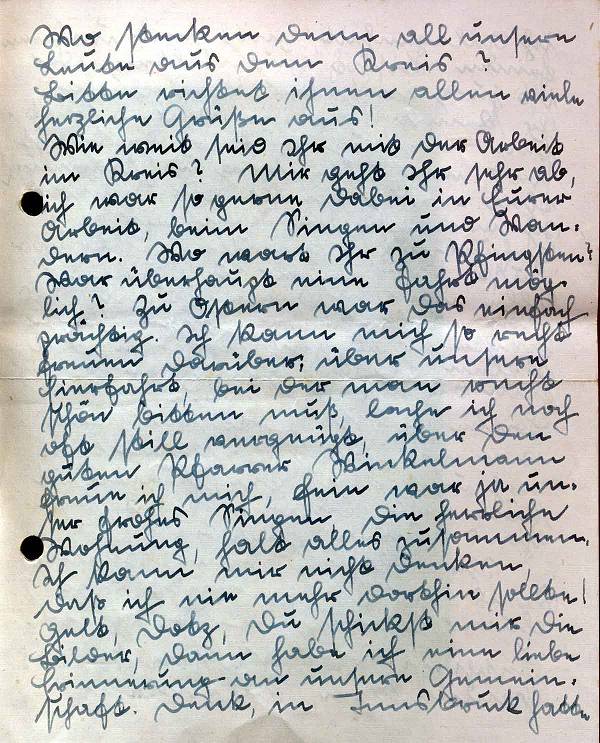 Wo stecken denn all unsere
Leute aus dem Kreis?
Bitte richtet ihnen allen viele
herzliche Grüße aus!
Wie weit seid Ihr mit der Arbeit
im Kreis? Mir geht Ihr sehr ab,
ich war so gerne dabei in Eurer
Arbeit, beim Singen und Wan-
dern. Wo wart Ihr zu Pfingsten?
War überhaupt eine Fahrt mög-
lich? Zu Ostern war das einfach
prächtig. Ich kann mich so recht
freuen darüber; über unsere
Eierfahrt, bei der man recht
schön bitten muß, lache ich noch
oft still vergnügt, über den
guten Pfarrer Winkelmann
freue ich mich, fein war ja un-
ser frohes Singen, die herrliche
Wohnung, halt alles zusammen.
Ich kann mir nicht denken,
daß ich nie mehr dorthin sollte!
Gelt, Dotz, Du schickst mir die
Bilder, dann habe ich eine liebe
Erinnerung an unsere Gemein-
schaft. Denk, in Innsbruck hatte